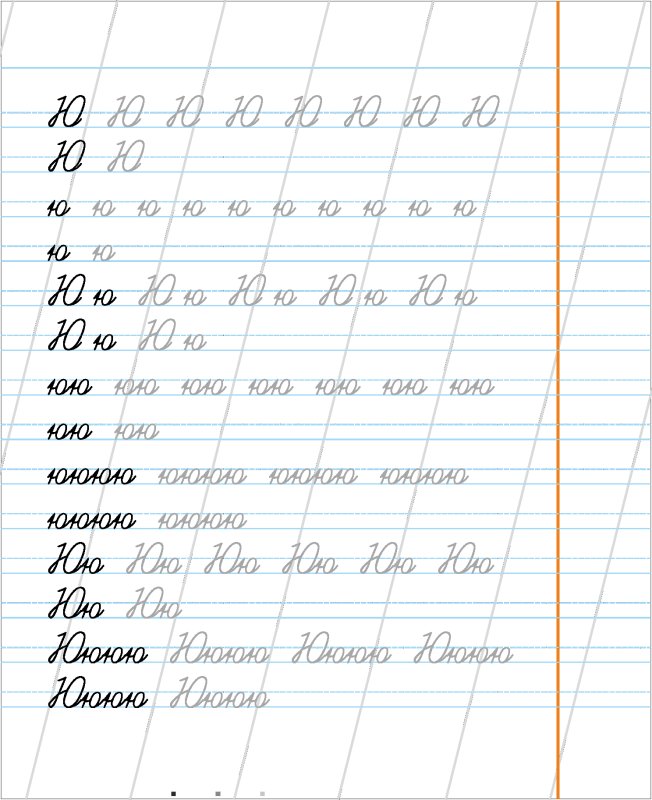 Ю Ю Ю Ю Ю Ю Ю Ю
Ю Ю
ю ю ю ю ю ю ю ю ю ю
ю ю
Ю ю Ю ю Ю ю Ю ю Ю ю
Ю ю Ю ю
юю юю юю юю юю юю юю
юю юю
юююю юююю юююю юююю
юююю юююю
Юю Юю Юю Юю Юю Юю
Юю Юю
Юююю Юююю Юююю Юююю
Юююю Юююю